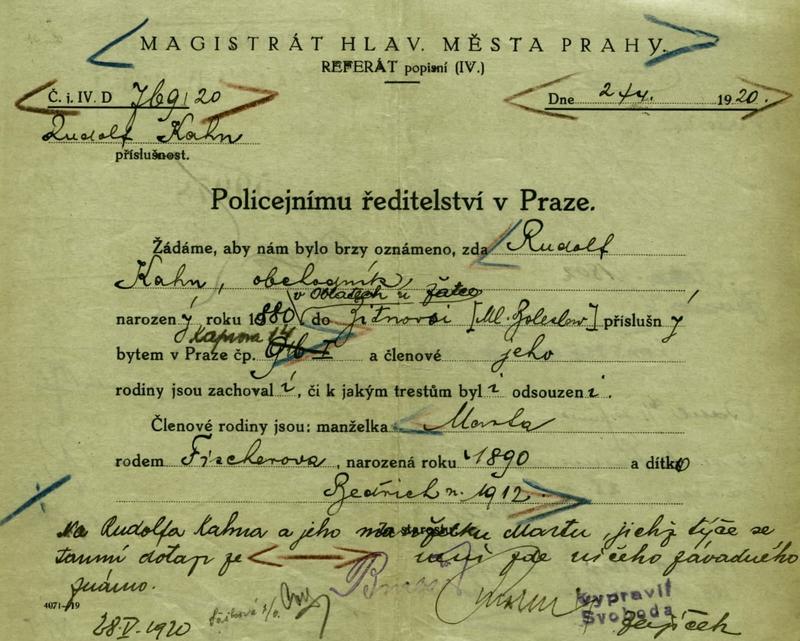 MAGISTRÁT HLAV. MĚSTA PRAHY.
REFERÁT popisní (IV.)
Č. j. IV. D 769/20
Dne 1920.
Rudolf Kahn
příslušnost.
Policejnímu ředitelství v Praze.
Žádáme, aby nám bylo brzy oznámeno, zda Rudolf
Kahn, obchodník,
v Oblatech u žatce
narozený roku 1880 do Žitnovsi [Ml. Boleslav] příslušný
Kaprova 14
bytem v Praze čp. a členové jeho
rodiny jsou zachovalí, či k jakým trestům byli odsouzeni.
Členové rodiny jsou: manželka Marta
rodem Fischerova, narozená roku 1890 a dítko
Bedřich n. 1912.
Na Rudolfa Kahna a jeho Martu jichž týče se
tamní dotaz ze není zde ničeho závadného
známo.
4071-19
28 V. 1920
Vypravit
Svoboda